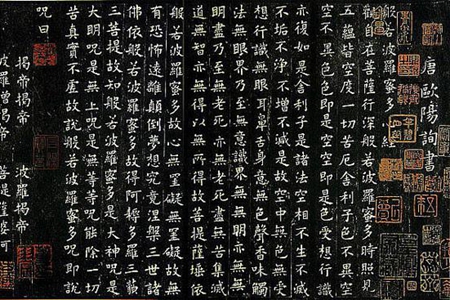 唐歐陽詢書
觀自在菩薩行深般若波羅蜜多時照見
五蘊皆空度一切苦厄舍利子色不異空
空不異色色即是空空即是色受想行識
亦復如是舍利子是諸法空相不生不滅
不垢不淨不增不減是故空中無色無受
想行識無眼耳鼻舌身意無色聲香味觸
法無眼界乃至無意識界無無明亦無無
明盡乃至無老死亦無老死盡無苦集滅
道無智亦無得以無所得故菩提薩埵依
般若波羅蜜多故心無罣礙無罣礙故無
有恐怖遠離顛倒夢想究竟涅槃三世諸
佛依般若波羅蜜多故得阿耨多羅三藐
三菩提故知般若波羅蜜多是大神呪是
大明呪是無上呪是無等等呪能除一切
苦真實不虛故說般若波羅蜜多呪即說
呪曰
揭帝揭帝 波羅揭帝
波羅僧揭帝 菩提薩